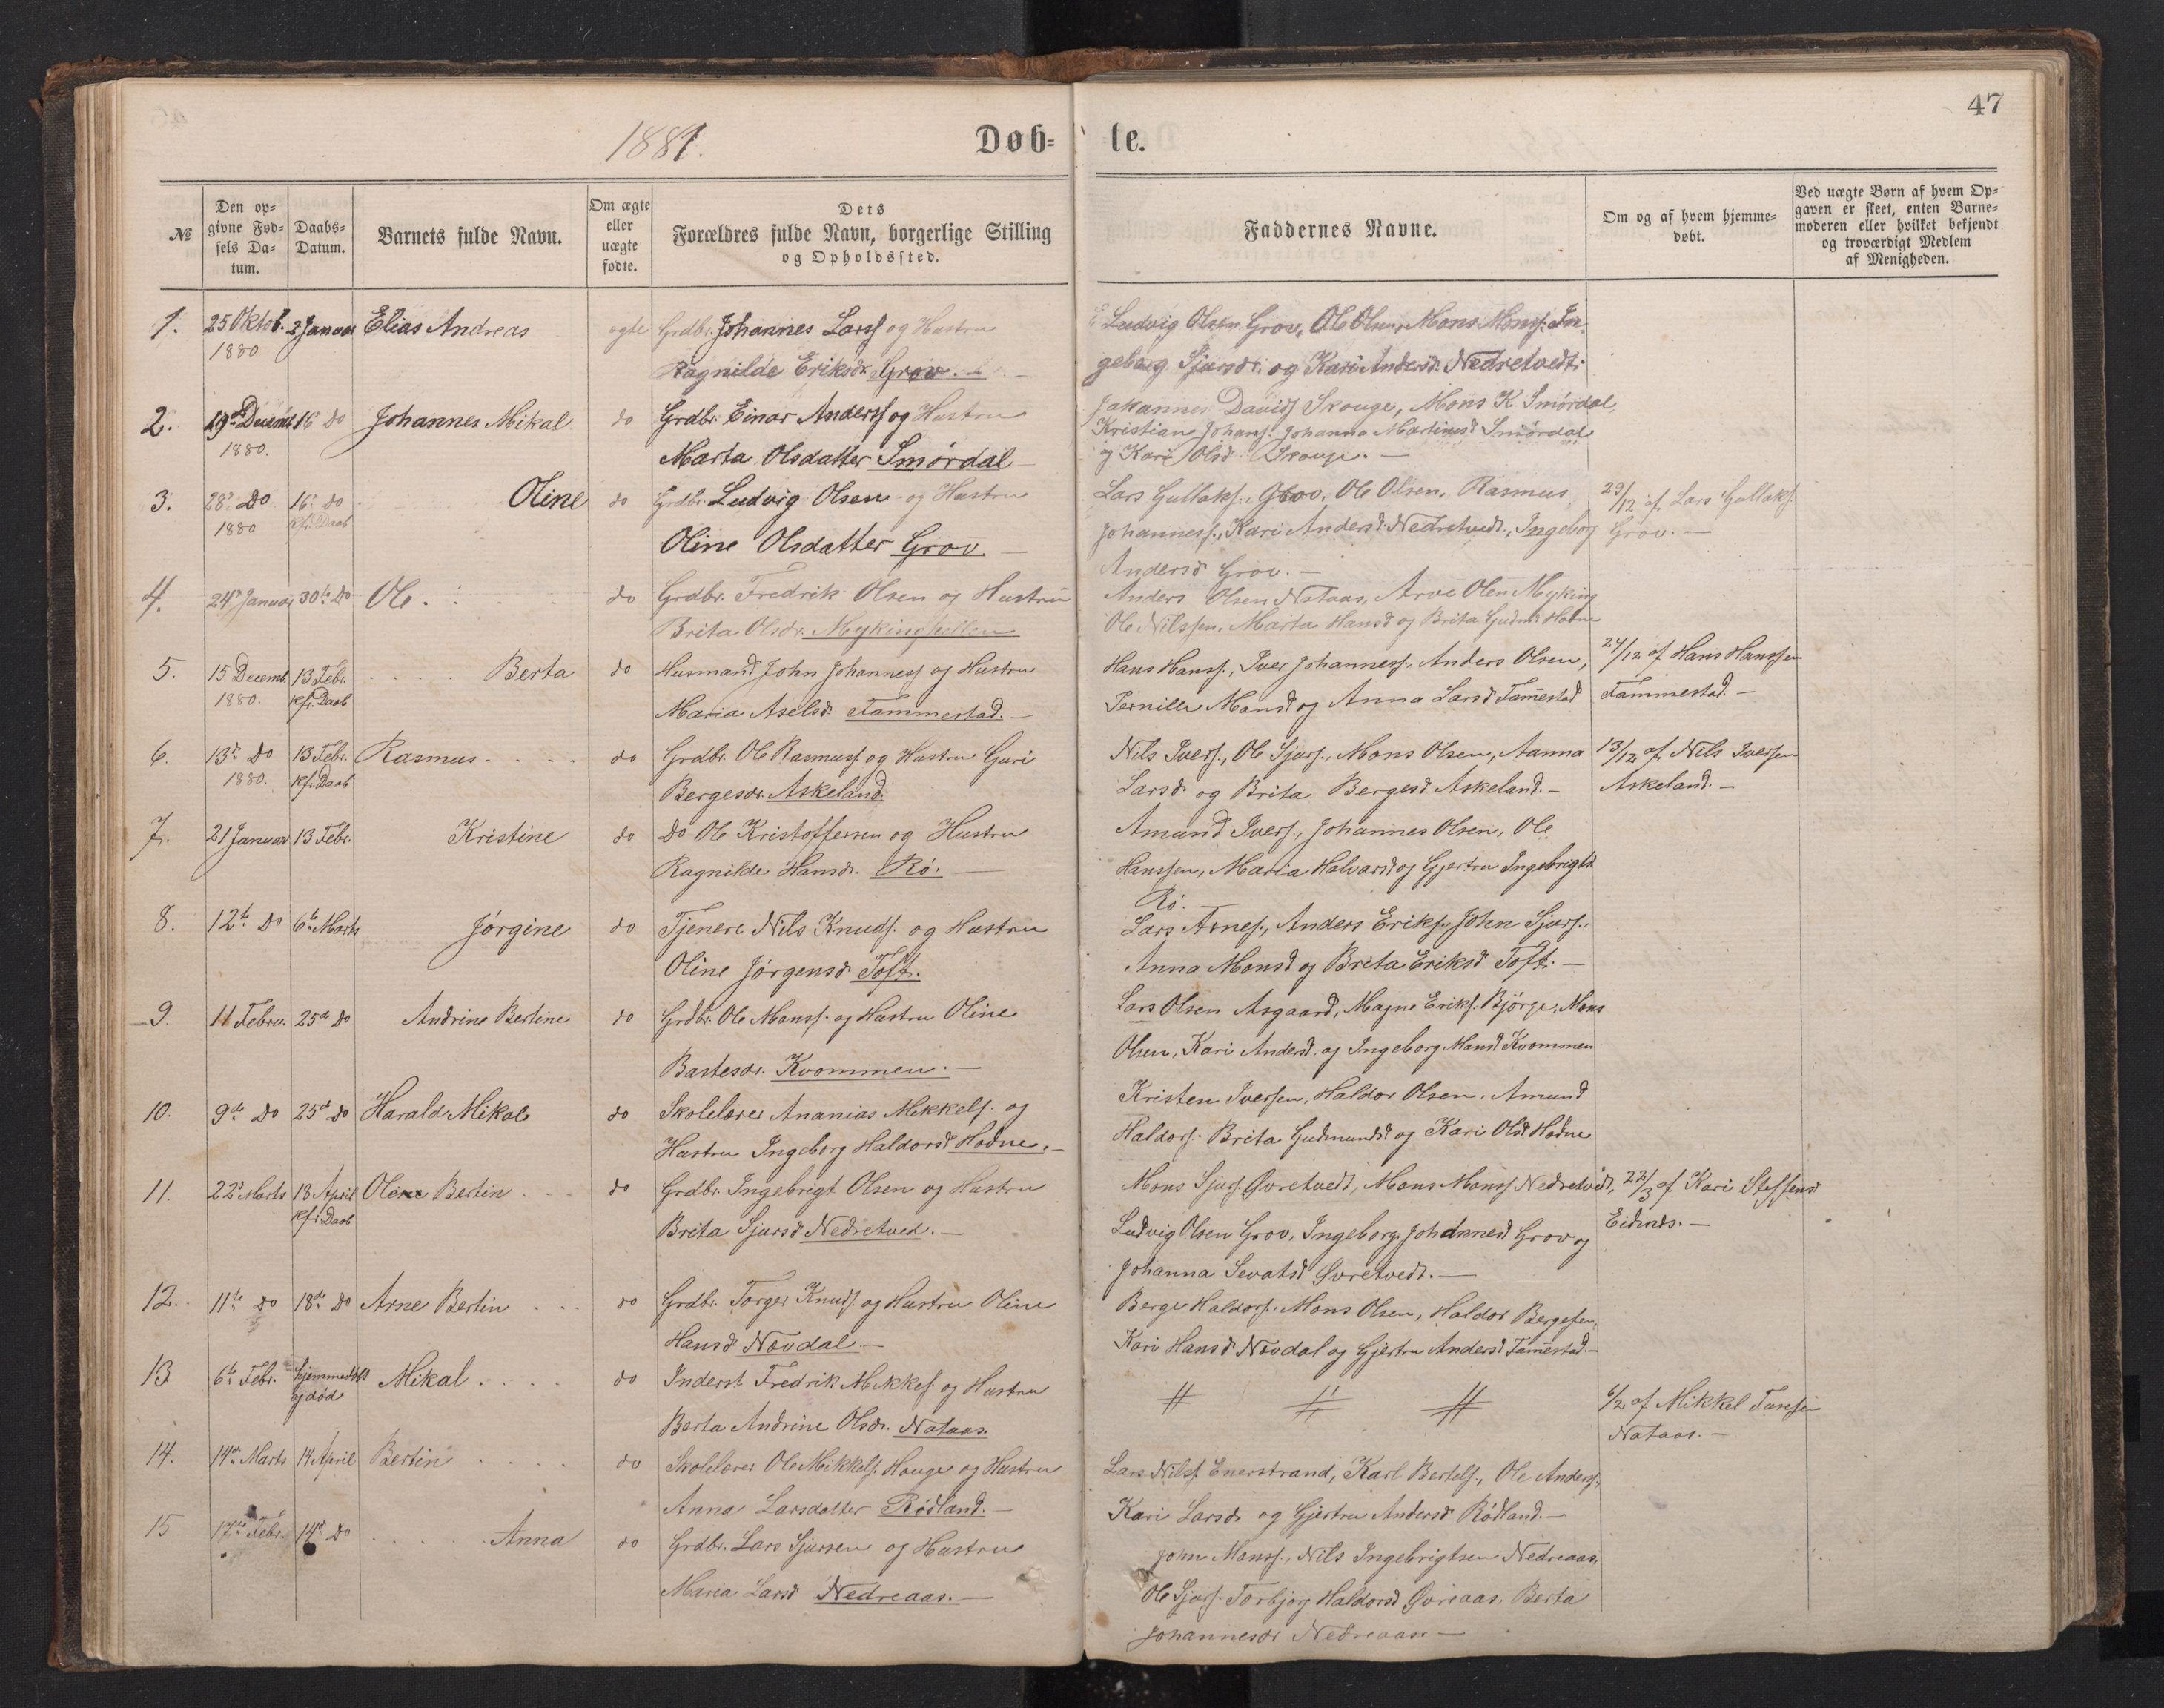 47
1881.
Døb=
te.
№
Den op=
givne Fød=
sels Da=
tum.
Daabs=
Datum.
Barnets fulde Navn.
Om ægte
eller
uægte
fødte.
Dets
Forældres fulde Navn, borgerlige Stilling
og Opholdssted.
Faddernes Navne.
Om og af hvem hjemme=
døbt.
Ved uægte Børn af hvem Op=
gaven er skeet, enten Barne=
moderen eller hvilket bekjendt
og troværdigt Medlem
af Menigheden.
1. 25 Oktob. 2 Januar Elias Andreas ægte Grdbr. Johannes Larss og Hustru
1880
Ragnilde Eriksdr. Grov. —
Ludvig Olsen Grov, Ole Olsen, Mons Monss. In
geborg Sjursdr. og Kari Andersd. Nedretvedt.
2. 19de Decemb. 16 do Johannes Mikal do Grdbr. Einar Anderss og Hustru
1880.
Marta Olsdatter Smørdal —
Johannes Davids Skouge, Mons K. Smørdal,
Kristian Johans. Johanna Martinusd Smørdal
og Kari Olsd. Skouge. —
3. 28de Do 16. do Oline do Grdbr. Ludvig Olsen og Hustru
1880 kfr. Daab
Oline Olsdatter Grov. —
Lars Gullaks., Grov, Ole Olsen, Rasmus
Johanness., Kari Andersd. Nedretvedt., Ingeborg
Andersd Grov. —
29/12 af Lars Gullaks
Grov. —
4. 24de Januar 30te Do Ole. do Grdbr. Fredrik Olsen og Hustru
Brita Olsdr.
Anders Olsen Nataas, Arve Olsen Myking
Ole Nilssen, Marta Hansd og Brita Gudm. Hodne
5. 15 Decemb. 13 Febr. Berta do Husmand John Johanness og Hustru
1880. kfr. Daab
Maria Aselsd. Tammestad. —
Hans Hanss., Iver Johanness., Anders Olsen,
Pernille Mansd og Anna Larsd Tam̅estad
27/12 af Hans Hanssen
Tammestad. —
6. 13de Do 13 Febr. Rasmus do Grdbr. Ole Rasmuss og Hustru Guri
1880. kfr. Daab
Bergesdr. Askeland.
Nils Ivers., Ole Sjurs., Mons Olsen, Aanna
Larsdr. og Brita Bergesd Askeland. —
13/12 af Nils Iversen
Askeland. —
7. 21 Januar 13 Febr. Kristine do Do Ole Kristoffersen og Hustru
Ragnilde Hansdr. Rø. —
Amund Ivers., Johannes Olsen, Ole
Hanssen, Maria Halvarsd og Gjertru Ingebrigtsd
Rø.
8. 12te Do 6te Marts Jørgine do Tjenere Nils Knuds. og Hustru
Oline Jørgensd Toft.
Lars Arnes., Anders Eriks., John Sjurs.,
Anna Monsd og Brita Eriksd Toft. —
9. 11 Febru. 25de Do Andrine Bertine do Grdbr. Ole Manss. og Hustru Oline
Bastesdr. Kvommen. —
Lars Olsen Asgaard, Magne Eriks. Bjørge, Mons
Olsen, Kari Andersd. og Ingeborg Mansd Kvommen
10. 9de Do 25de do Harald Mikal do Skolelærer Ananias Mikkels. og
Hustru Ingeborg Haldorsd Hodne. —
Kristen Iversen, Haldor Olsen, Amund
Haldors. Brita Gudmundsd og Kari Olsd Hodne
11. 22de Marts 18 April Bertin do Grdbr. Ingebrigt Olsen og Hustru
kfr. Daab
Brita Sjursd Nedretved. —
Mons Sjurs Øvretvedt, Mons Monss Nedretvedt,
Ludvig Olsen Grov, Ingeborg Johannesd Grov og
Johanna Sevatsd Øvretvedt. —
22/3 af Kari Steffensd
Eidnes. —
12. 11te Do 18de Do Arne Bertin do Grdbr. Torger Knuds. og Hustru Oline
Hansd Novdal —
Berge Haldors. Mons Olsen, Haldor Bergesen,
Kari Hansd Novdal og Gjertru Andersd Tam̅estad. —
13 6te Febr. hjemmedøbt Mikal do Inderst Fredrik Mikkels og Hustru
og død
Berta Andrine Olsdr. Nataas.
6/2 af Mikkel
Nataas. —
14. 14de Marts 14 April Bertin do Skolelærer Ole Mikkels. Hauge og Hustru
Anna Larsdatter Rødland. —
Lars Nilss. Enerstrand, Karl Bertels., Ole Anders.,
Kari Larsdr. og Gjertru Andersd Rødland. —
15 17de Febr. 14de Do Anna do Grdbr. Lars Sjursen og Hustru
Maria Larsd Nedreaas. —
John Manss., Nils Ingebrigtsen Nedreaas,
Ole Sjurs. Torbjør Haldorsd Øvreaas, Berta
Johannesdr Nedreaas —